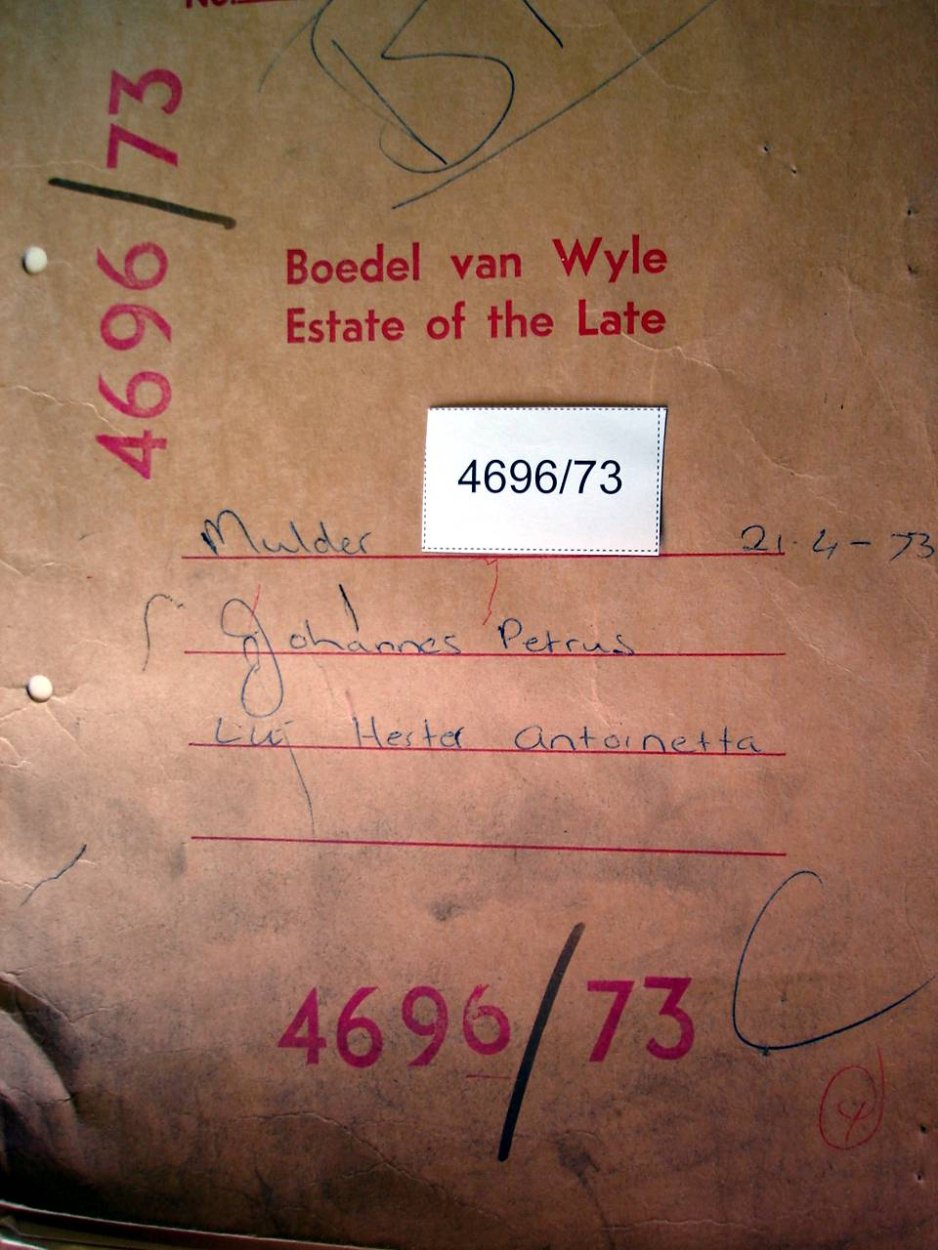 No.
4696/73
Boedel van Wyle
Estate of the Late
4696/73
Mulder 21-4-73
Johannes Petrus
Hester Antoinetta
4696/73
C